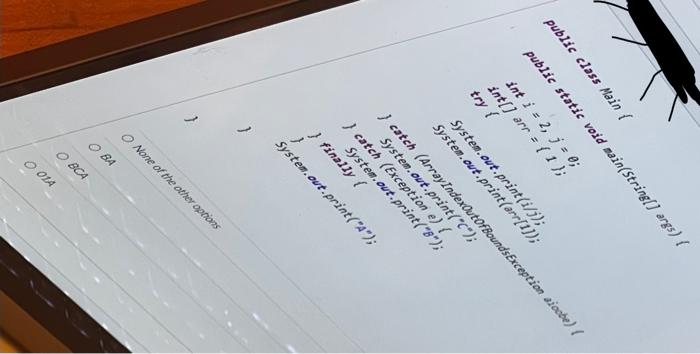 public class Main {
public static void main(String[] args) {
int i = 2, j = 0;
int[] arr = { 1 };
try {
System.out.print(i/j);
System.out.print(arr[1]);
} catch (ArrayIndexOutOfBoundsException aioobe) {
System.out.print("C");
} catch (Exception e) {
System.out.print("B");
} finally {
System.out.print("A");
}
}
}
None of the other options
BA
BCA
01A